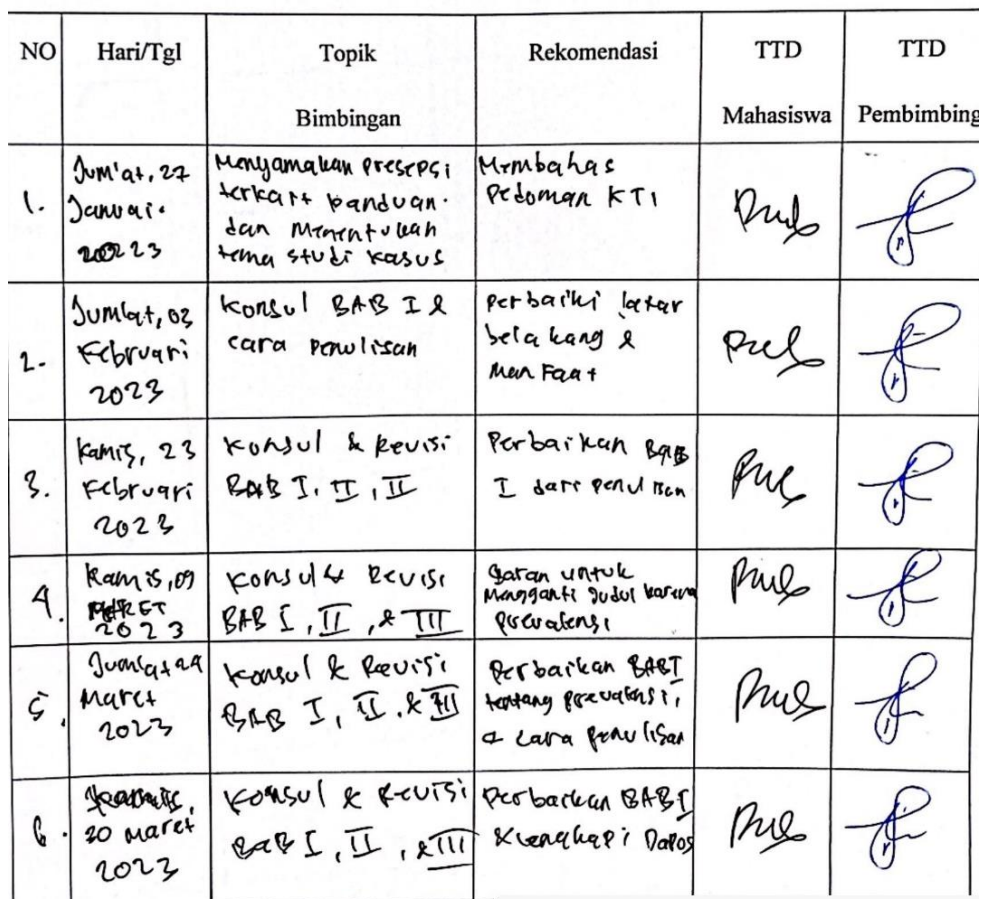 NO Hari/Tgl Topik Bimbingan Rekomendasi TTD Mahasiswa TTD Pembimbing
1.
Jum'at, 27
Januari.
2023
Menyamakan presepsi
terkait panduan.
dan Menentukan
tema studi kasus
Membahas
Pedoman KTI
2.
Jumlat, 03
Februari
2023
Konsul BAB I &
cara penulisan
perbaiki latar
belakang &
Manfaat
3.
Kamis, 23
Februari
2023
Konsul & Revisi
BAB I, II, II
Perbaikan BAB
I dari penulisan
4.
Kamis, 09
MARET
2023
Konsul & Revisi
BAB I, II, & III
Saran untuk
Mengganti Judul karena
prevalensi
5.
Jumlat 24
Maret
2023
Konsul & Revisi
BAB I, II, & III
Perbaikan BAB I
tentang prevalensi,
& cara penulisan
6.
30 Maret
2023
Konsul & Revisi
BAB I, II, & III
Perbaikan BAB I
& lengkapi Dapos